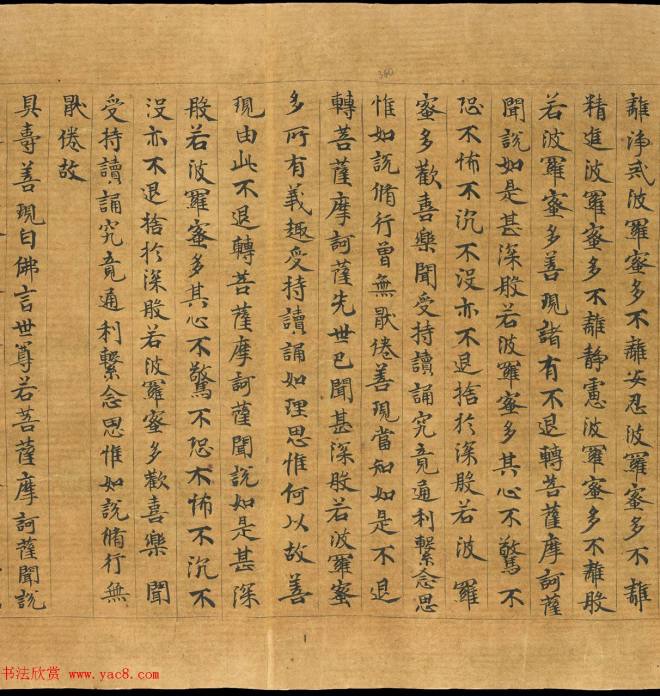 離淨戒波羅蜜多不離安忍波羅蜜多不離
精進波羅蜜多不離静慮波羅蜜多不離般
若波羅蜜多善現諸有不退轉菩薩摩訶薩
聞說如是甚深般若波羅蜜多其心不驚不
恐不怖不沉不没亦不退捨於深般若波羅
蜜多歡喜樂聞受持讀誦究竟通利繫念思
惟如說脩行曾無厭倦善現當知如是不退
轉菩薩摩訶薩先世已聞甚深般若波羅蜜
多所有義趣受持讀誦如理思惟何以故善
現由此不退轉菩薩摩訶薩聞說如是甚深
般若波羅蜜多其心不驚不恐不怖不沉不
没亦不退捨於深般若波羅蜜多歡喜樂聞
受持讀誦究竟通利繫念思惟如說脩行無
厭倦故
具壽善現白佛言世尊若菩薩摩訶薩聞說
340
1
书法欣赏 www.yac8.com